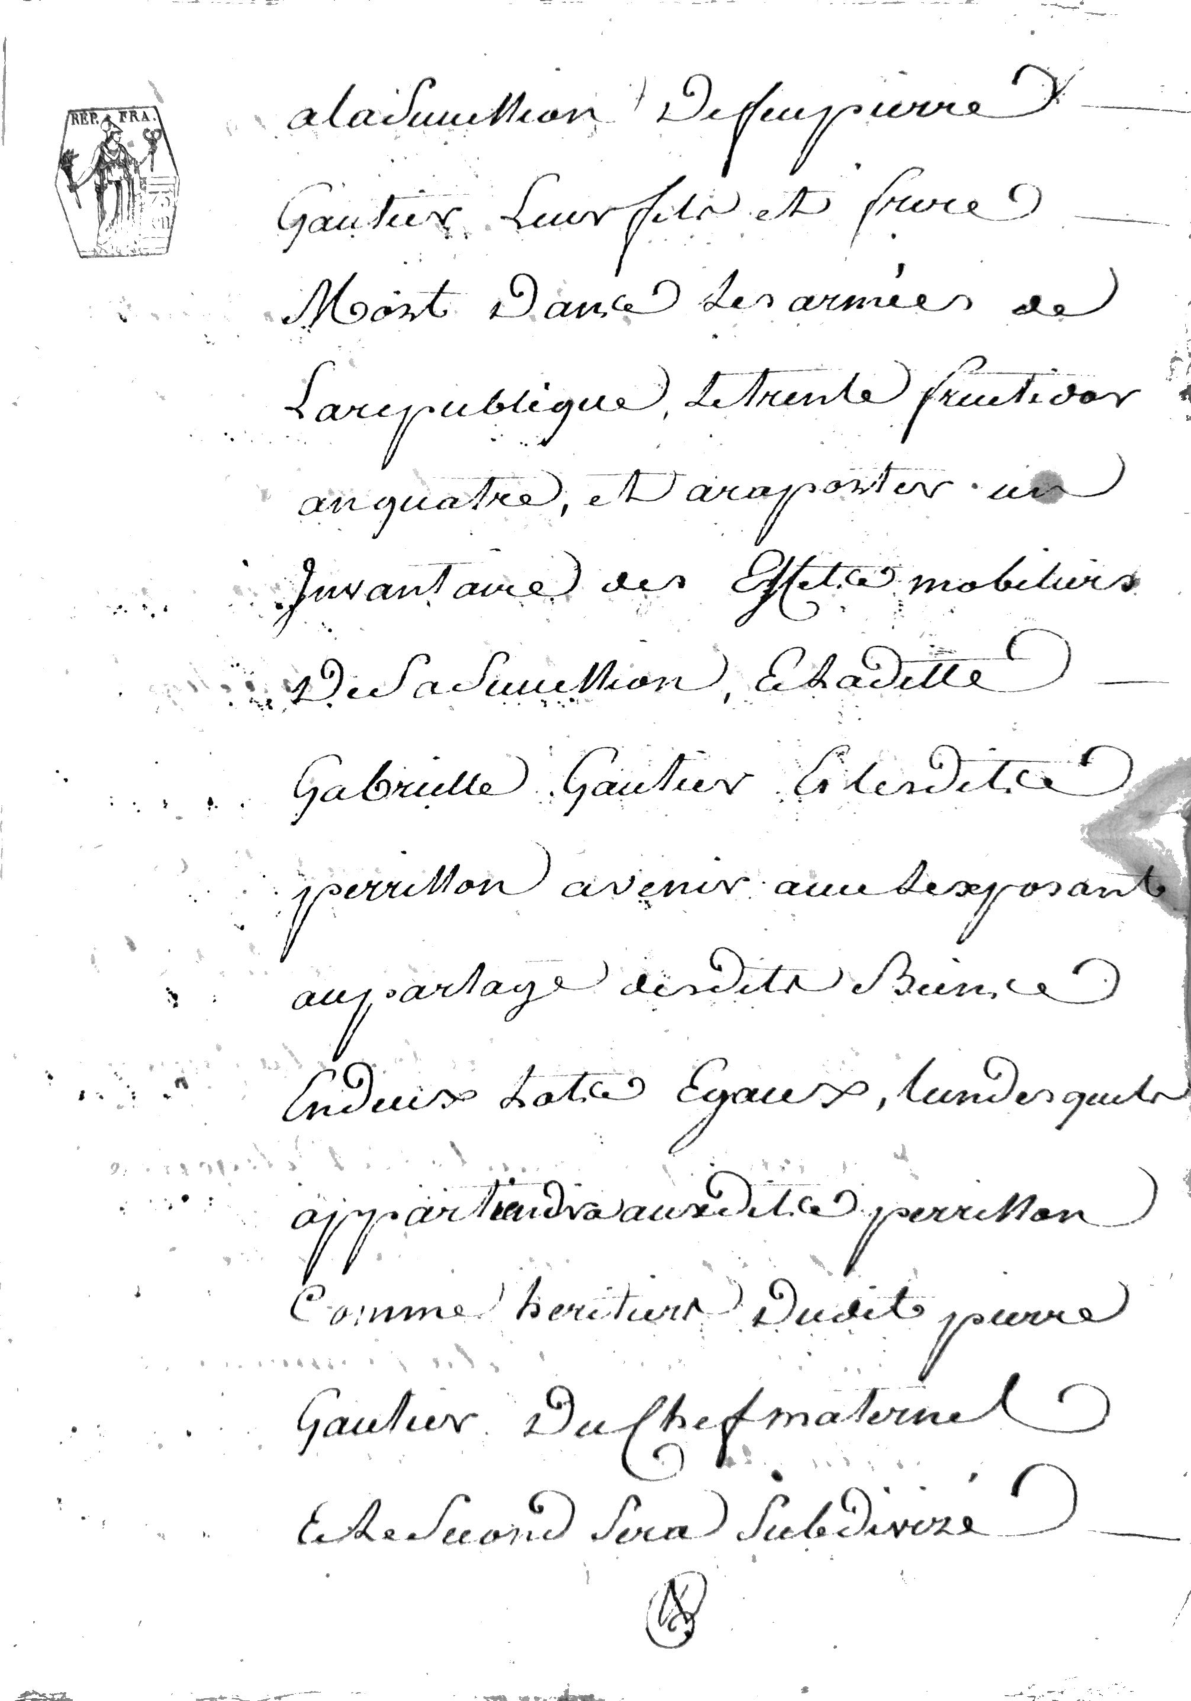 REP. FRA.
a la Succession De feu pierre
Gautier Leur fils et frere
Mort Dans Les armées de
La republique, Le trente fructidor
an quatre, et a raporter un
Invantaire des Effets mobiliers
De Sa Succession, Et La ditte
Gabrielle Gautier Et Les dits
perrillon a venir avec Lexposant
au partage desdits Biens
En deux Lots Egaux, lun desquels
appartiendra aux dits perrillon
Comme heritiers Dudit pierre
Gautier Du Chef maternel
Et Le Second Sera Subdivizé